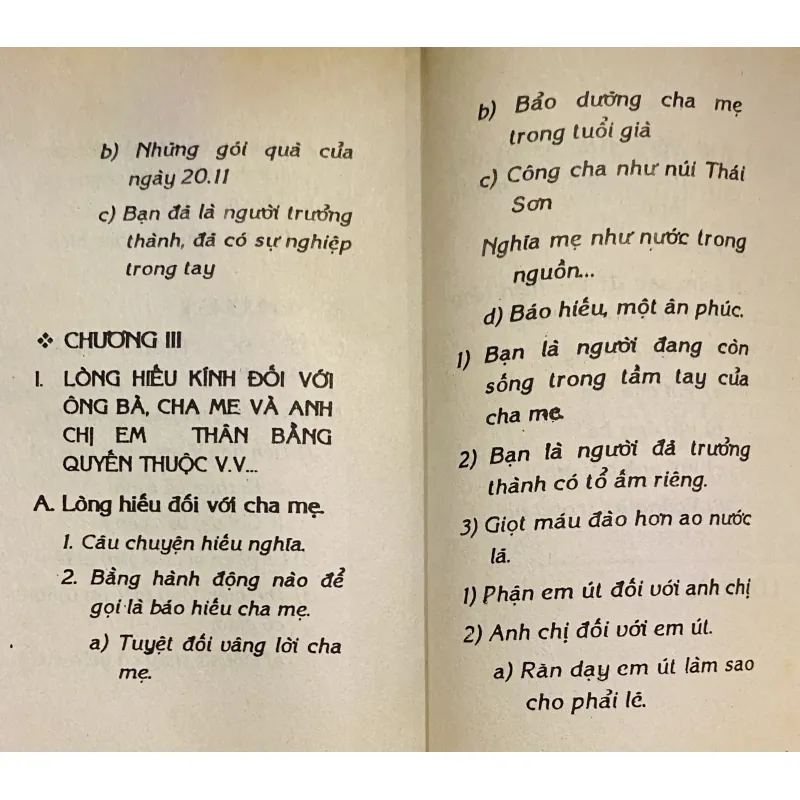 b) Những gói quà của
ngày 20.11
c) Bạn đã là người trưởng
thành, đã có sự nghiệp
trong tay
❖ CHƯƠNG III
I. LÒNG HIẾU KÍNH ĐỐI VỚI
ÔNG BÀ, CHA MẸ VÀ ANH
CHỊ EM THÂN BẰNG
QUYẾN THUỘC V.V...
A. Lòng hiếu đối với cha mẹ.
1. Câu chuyện hiếu nghĩa.
2. Bằng hành động nào để
gọi là báo hiếu cha mẹ.
a) Tuyệt đối vâng lời cha
mẹ.
b) Bảo dưỡng cha mẹ
trong tuổi già
c) Công cha như núi Thái
Sơn
Nghĩa mẹ như nước trong
nguồn...
d) Báo hiếu, một ân phúc.
1) Bạn là người đang còn
sống trong tầm tay của
cha mẹ.
2) Bạn là người đã trưởng
thành có tổ ấm riêng.
3) Giọt máu đào hơn ao nước
lã.
1) Phận em út đối với anh chị
2) Anh chị đối với em út.
a) Răn dạy em út làm sao
cho phải lẽ.